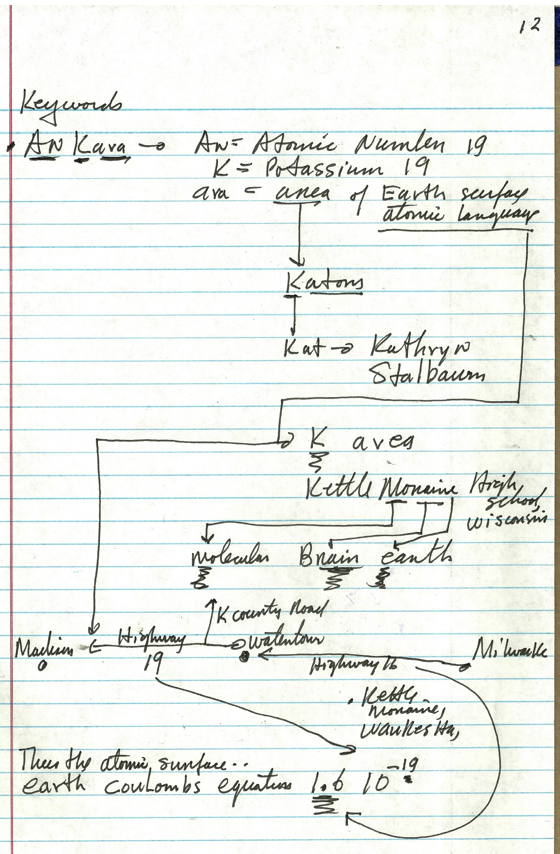 12
Keywords
• AN Kara → AN = Atomic Number 19
K = Potassium 19
ara = area of Earth surface
atomic language
Katons
Kat → Kathryn
Stalbaum
K area
Kettle Moraine High
school,
Wisconsin
molecular Brain earth
K county Road
Madison Highway
19
Watertown
Highway 16
Milwauke
• Kettle
Moraine,
Waukesha,
Thus the atomic, surface..
earth coulombs equation 1.6 10⁻¹⁹